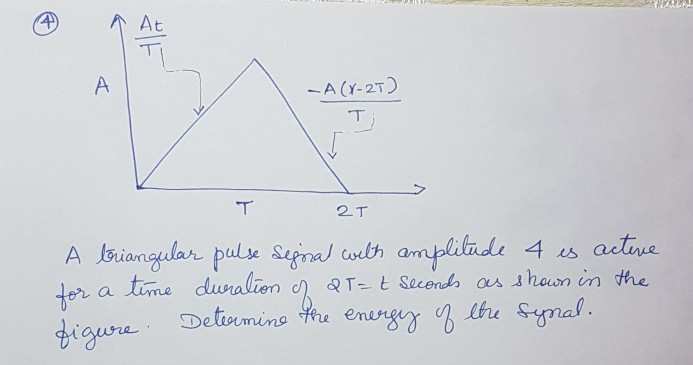 ④
At
T
A
-A(γ-2T)
T
T
2T
A triangular pulse signal with amplitude 4 is active
for a time duration of 2T= t seconds as shown in the
figure. Determine the energy of the synal.